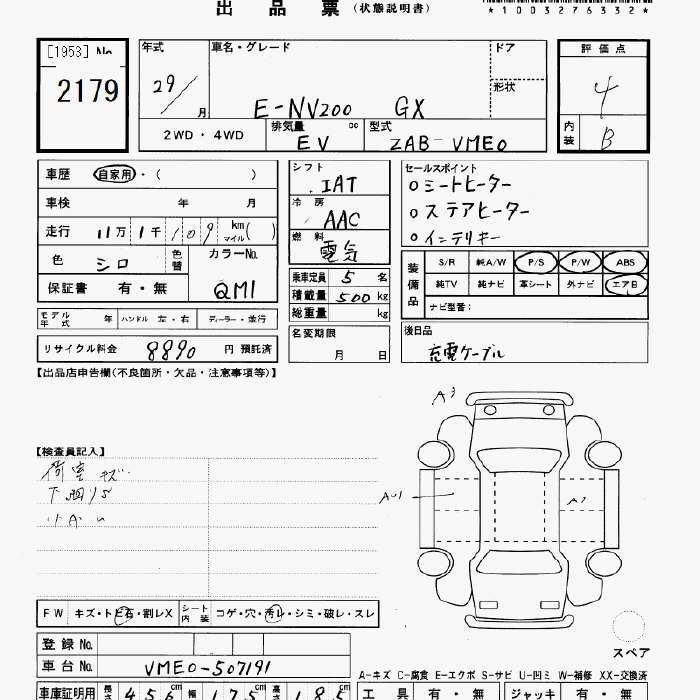 出 品 票 (状態説明書)
*1003276332*
[1953] No.
2179
年式 車名・グレード ドア
29/ 月 E-NV200 GX 形状
評価点
4
内装 B
2WD・4WD 排気量 cc EV 型式 ZAB-VME0
車歴 自家用・( )
車検 年 月
走行 11万 1千 109 km マイル( )
色 シロ 色替 カラーNo. QM1
保証書 有・無
シフト IAT
冷房 AAC
燃料 電気
乗車定員 5 名
積載量 500 kg
総重量 kg
セールスポイント
○シートヒーター
○ステアヒーター
○インテリキー
装備品 S/R 純A/W P/S P/W ABS
純TV 純ナビ 革シート 外ナビ エアB
ナビ型番:
モデル年式 年 ハンドル 左・右 ディーラー・並行
名変期限 月 日
後日品
充電ケーブル
リサイクル料金 8890 円 預託済
【出品店申告欄(不良箇所・欠品・注意事項等)】
A3
【検査員記入】
荷室 キズ
A-1
A2
FW キズ・トビ石・割レX シート内装 コゲ・穴・汚レ・シミ・破レ・スレ
スペア
登録 No.
車台 No. VME0-507191
A-キズ C-腐食 E-エクボ S-サビ U-凹ミ W-補修 XX-交換済
車庫証明用 長さ 456 cm 幅 175 cm 高さ 185 cm
工具 有・無 ジャッキ 有・無